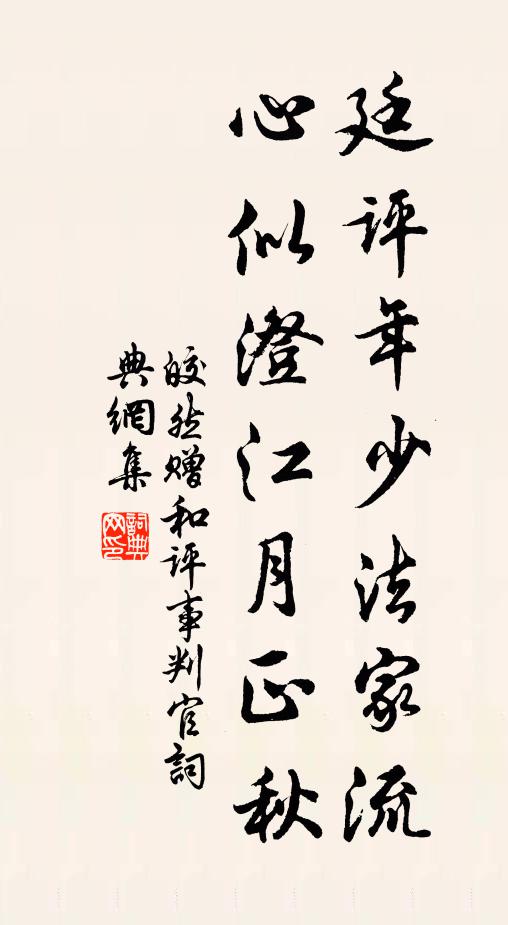 廷評年少法家流
心似澄江月正秋
皎然赠和評事判官詞
典網集
詞典
网印